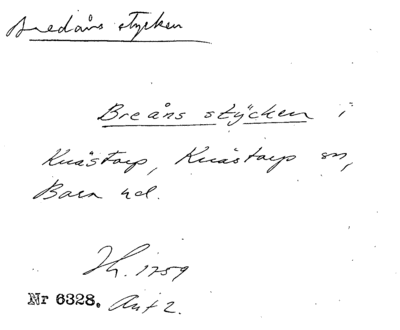 Bredåns stycken
Breåns stÿcken i
Knästorp, Knästorps sn,
Bara hd.
Jh. 1759
Nr 6328. Akt 2.